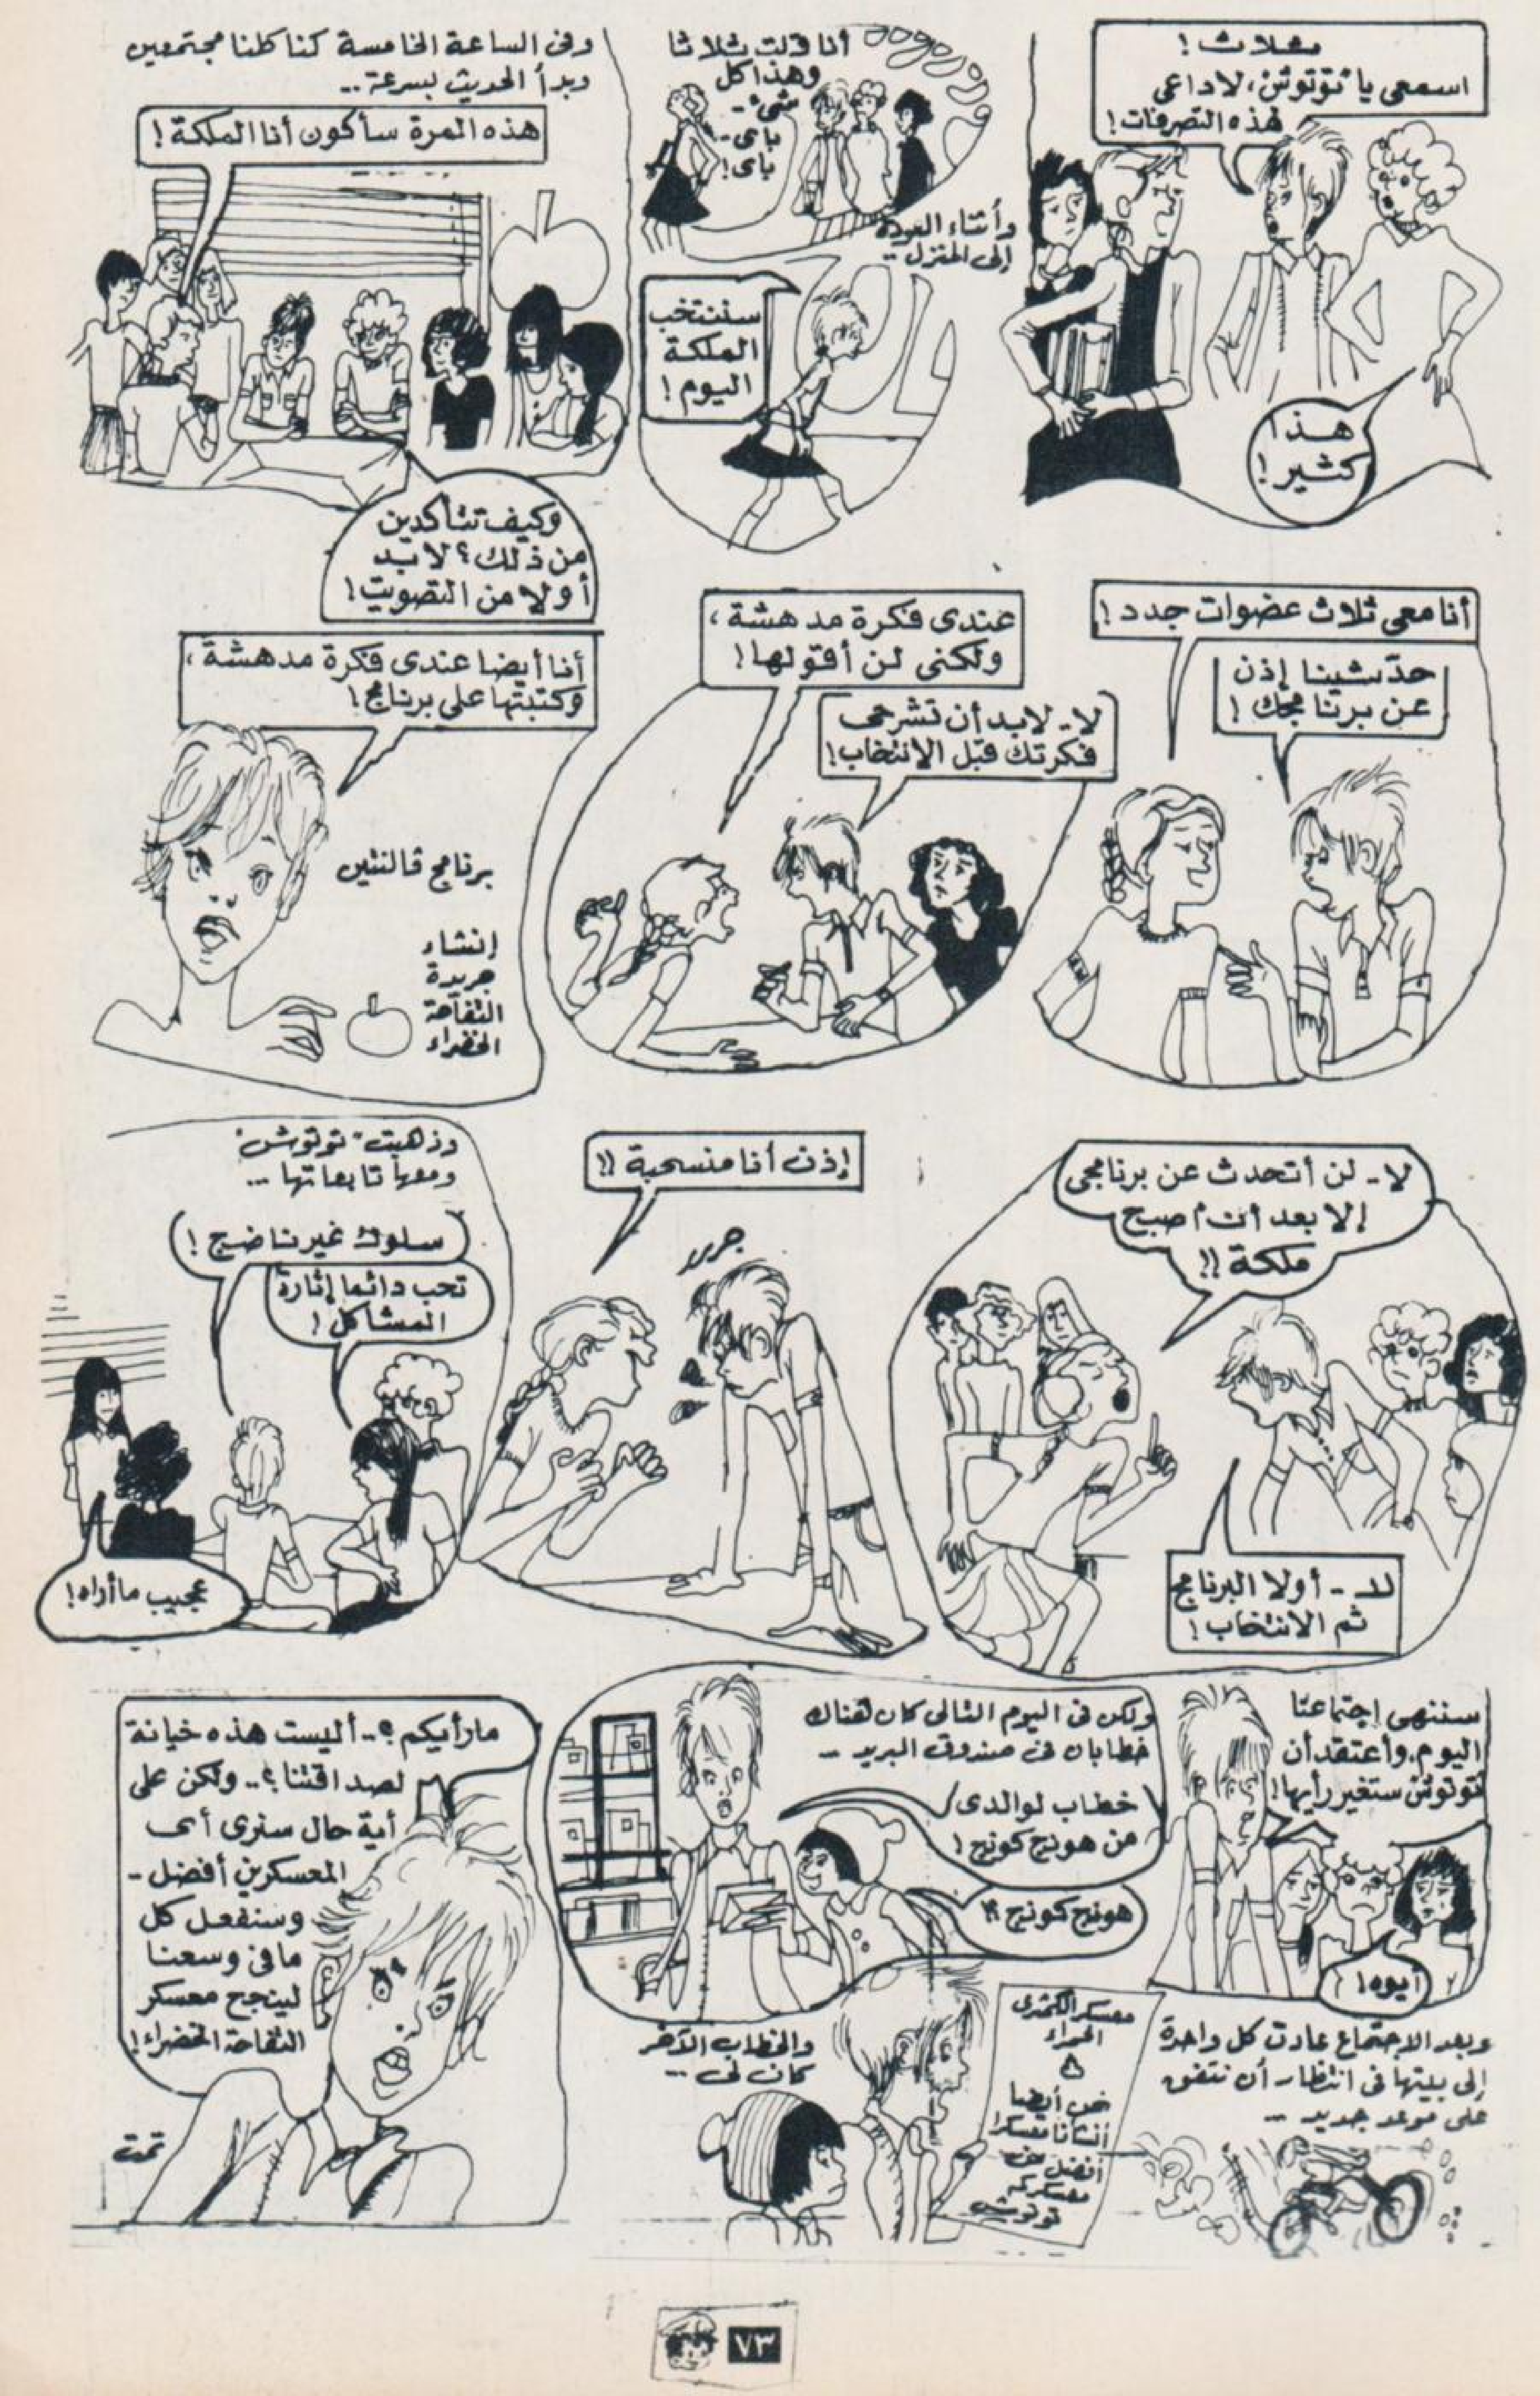 ثلاث !
اسمعى يا "توتوش"، لاداعى
لهذه التصرفات !
هذا
كثير !
أنا قلت ثلاثا
وهذا كل
شىء -
باى -
باى !
وأثناء العودة
إلى المنزل ..
سننتخب
الملكة
اليوم !
وفى الساعة الخامسة كنا كلنا مجتمعين
وبدأ الحديث بسرعة ..
هذه المرة سأكون أنا الملكة !
وكيف تتأكدين
من ذلك ؟ لابد
أولا من التصويت !
أنا معى ثلاث عضوات جدد !
حدثينا إذن
عن برنامجك !
عندى فكرة مدهشة ،
ولكنى لن أقولها !
لا - لابد أن تشرحى
فكرتك قبل الانتخاب !
أنا أيضا عندى فكرة مدهشة ،
وكتبتها على برنامج !
برنامج ڤالنتين
إنشاء
جريدة
التفاحة
الخضراء
لا - لن أتحدث عن برنامجى
إلا بعد أن أصبح
ملكة !!
لا - أولا البرنامج
ثم الانتخاب !
إذن أنا منسحبة !!
وذهبت "توتوش"
ومعها تابعاتها ...
سلوك غير ناضج !
تحب دائما إثارة
المشاكل !
عجيب ما أراه !
سننهى إجتماعنا
اليوم، وأعتقد أن
توتوش ستغير رأيها !
أيوه !
وبعد الاجتماع عادت كل واحدة
إلى بيتها فى انتظار أن نتفق
على موعد جديد ..
ولكن فى اليوم التالى كان هناك
خطابان فى صندوق البريد ..
خطاب لوالدى
من هونج كونج !
هونج كونج ؟!
والخطاب الآخر
كان لى ...
معسكر الكمثرى
الحمراء
نحن أيضا
أنشأنا معسكرا
أفضل من
معسكركم
توتوش
مارأيكم ؟ .. أليست هذه خيانة
لصداقتنا ؟ .. ولكن على
أية حال سنرى أى
المعسكرين أفضل -
وسنفعل كل
مافى وسعنا
لينجح معسكر
التفاحة الخضراء !
تمت
٧٣